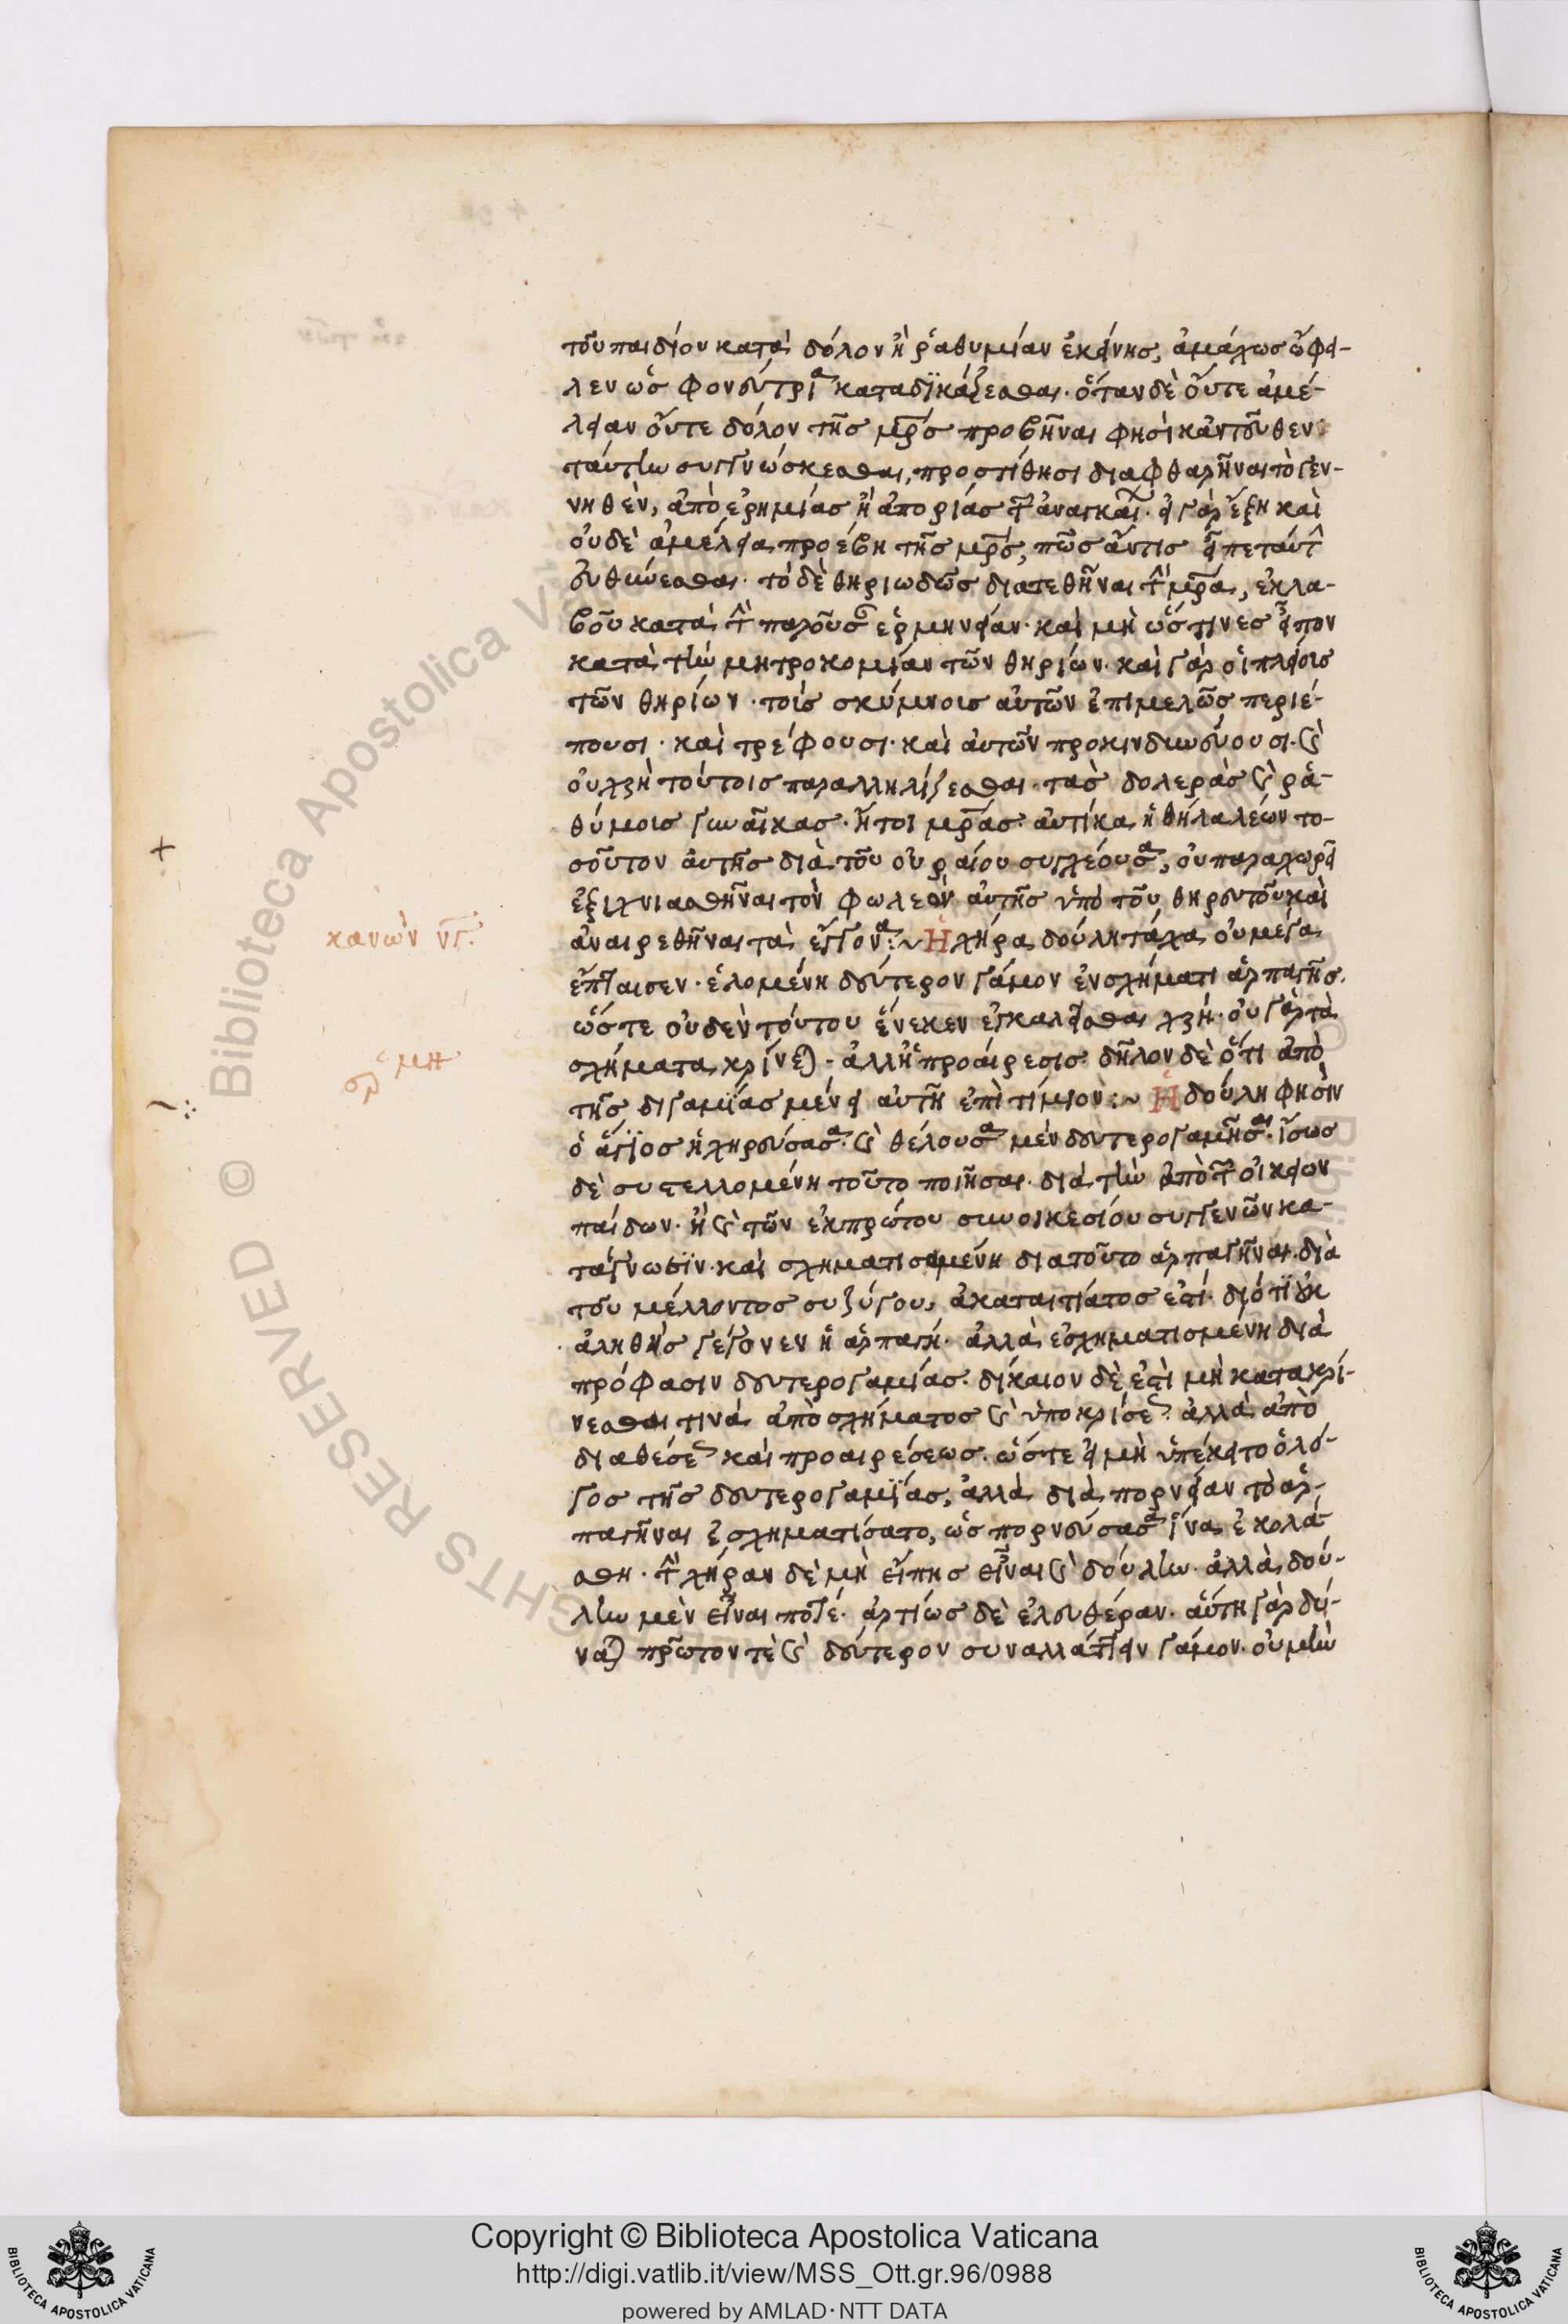 τοῦ παιδίου κατὰ δόλον ἢ ῥαθυμίαν ἐκείνης, ἀμάχως ὤφει-
λεν ὡς φονεύτρια καταδϊκάζεσθαι· ὅταν δὲ οὔτε ἀμέ-
λειαν οὔτε δόλον τῆς μρ̅ς προβῆναι φησὶ κἀντεῦθεν
ταύτην συγγνώσκεσθαι, προστίθησι διαφθαρῆναι τὸ γεν-
νηθὲν, ἀπὸ ἐρημίας ἢ ἀπορίας τῶν ἀναγκαίων· εἰ γὰρ ἕξη καὶ
οὐδὲ ἀμέλεια προέβη τῆς μρ̅ς, πῶς ἄν τις εἶπε ταύτην
εὐθύνεσθαι· τὸ δὲ θηριωδῶς διατεθῆναι τὴν μρ̅α, ἐκλα-
βοῦ κατὰ τὴν παροῦσαν ἑρμηνείαν· καὶ μὴ ὥς τινες εἶπον
κατὰ τὴν μητροκομίαν τῶν θηρίων· καὶ γὰρ οἱ πλείοις
τῶν θηρίων· τοῖς σκύμνοις αὐτῶν ἐπιμελῶς περιέ-
πουσι· καὶ τρέφουσι· καὶ αὐτῶν προκινδυνεύουσι· καὶ
οὐ χρὴ τούτοις παραλληλίζεσθαι· τὰς δολερὰς καὶ ῥα-
θύμοις γυναῖκας· ἤτοι μρ̅ας· αὐτίκα ἡ θήλα λέων το-
σοῦτον αὐτῆς διὰ τοῦ οὐραίου συγχέουσα, οὐ παραχωρεῖ
ἐξιχνιασθῆναι τὸν φωλεὸν αὐτῆς ὑπὸ τοῦ θηρευτοῦ καὶ
κανὼν ν̅γ̅·
ἀναιρεθῆναι τὰ ἔγγονα :~ Ἡ χήρα δούλη τάχα οὐ μέγα
ἔπταισεν· ἑλομένη δεύτερον γάμον ἐν σχήματι ἁρπαγῆς·
ὥστε οὐδὲν τούτου ἕνεκεν ἐγκαλεῖσθαι χρή· οὐ γὰρ τὰ
σχήματα κρίνεται· ἀλλ' ἡ προαίρεσις· δῆλον δὲ ὅτι ἀπὸ
τῆς διγαμΐας μένει αὐτῆ ἐπὶ τίμιον :~ Ἡ δούλη φησὶν
ὁ ἅγϊος ἡ χηρεύσασα· καὶ θέλουσα μὲν δευτερογαμῆσαι· ἴσως
δὲ συστελλομένη τοῦτο ποιῆσαι· διὰ τὴν ἀπὸ τῶν οἰκείων
παίδων· ἢ καὶ τῶν ἐκ πρώτου συνοικεσίου συγγενῶν κα-
τάγνωσϊν· καὶ σχηματισαμένη διατοῦτο ἁρπαγῆναι διὰ
τοῦ μέλλοντος συζύγου, ἀκαταιτίατος ἐστί· διότι οὐκ
ἀληθὴς γέγονεν ἡ ἁρπαγή· ἀλλὰ ἐσχηματισμένη διὰ
πρόφασιν δευτερογαμίας· δίκαιον δὲ ἐστὶ μὴ κατακρί-
νεσθαι τινὰ ἀπὸ σχήματος καὶ ὑποκρίσεως· ἀλλὰ ἀπὸ
διαθέσεως καὶ προαιρέσεως· ὥστε εἰ μὴ ὑπέκειτο ὁ λό-
γος τῆς δευτερογαμΐας, ἀλλὰ διὰ πορνείαν τὸ ἁρ-
παγῆναι ἐσχηματίσατο, ὡς πορνεύσασα ἵνα ἐκολά-
σθη· τὴν χήραν δὲ μὴ εἴπης εἶναι καὶ δούλην· ἀλλὰ δού-
λην μὲν εἶναι ποτέ· ἀρτίως δὲ ἐλευθέραν· αὕτη γὰρ δύ-
ναται πρῶτον τὲ καὶ δεύτερον συναλλάττειν γάμον· οὐ μὴν